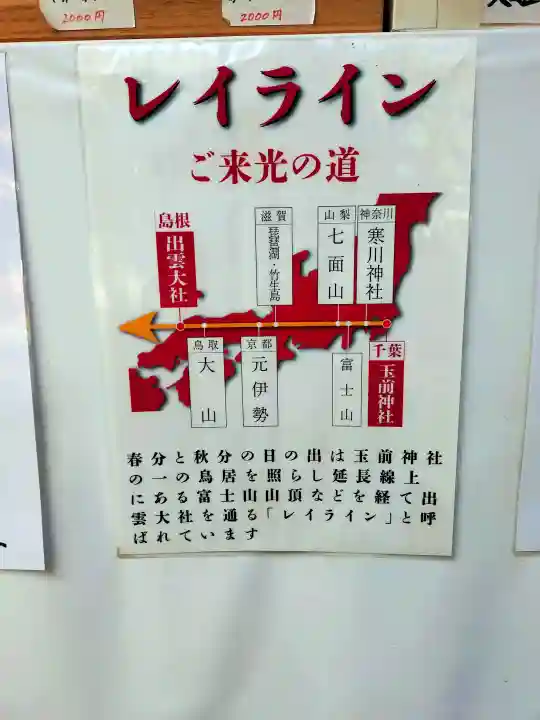 2000円
2000円
レイライン
ご来光の道
島根
出雲大社
滋賀
琵琶湖・竹生島
山梨
七面山
神奈川
寒川神社
鳥取
大山
京都
元伊勢
富士山
千葉
玉前神社
春分と秋分の日の出は玉前神社
の一の鳥居を照らし延長線上
にある富士山山頂などを経て出
雲大社を通る「レイライン」と呼
ばれています